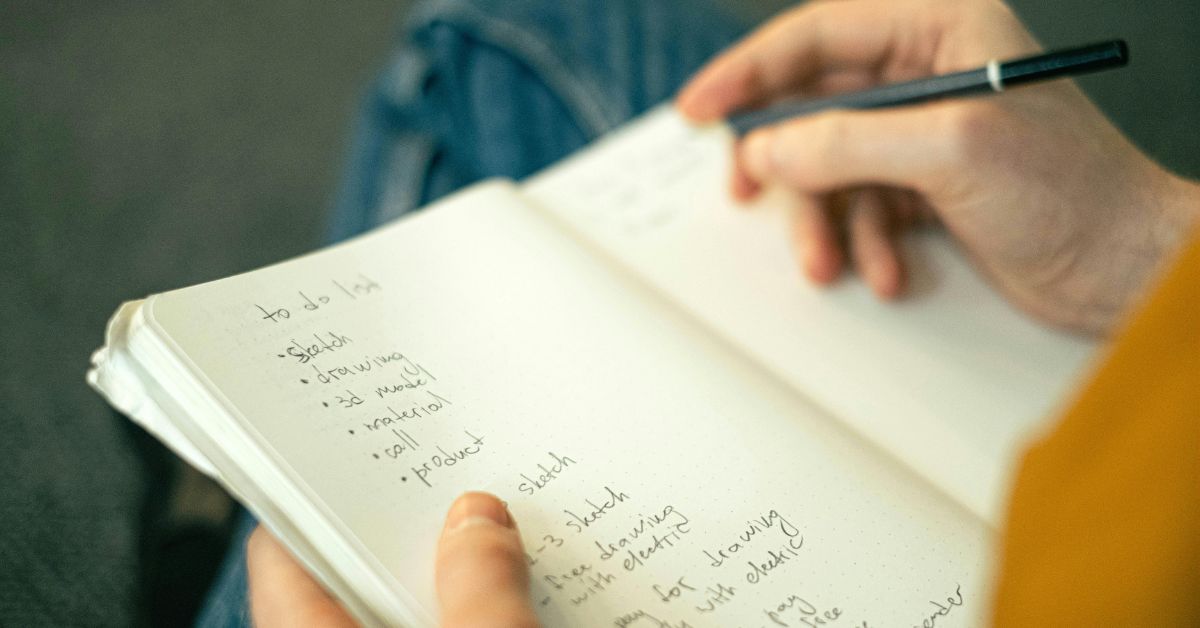 to do list
• sketch
• drawing
• 3d model
• material
• call
• product
sketch
2-3 sketch
• free drawing
with electric
pay for drawing
with electric
pay
free